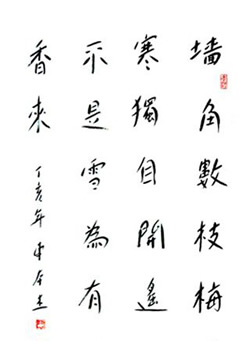 墙角數枝梅
寒獨自開遙
不是雪為有
香來
丁亥年